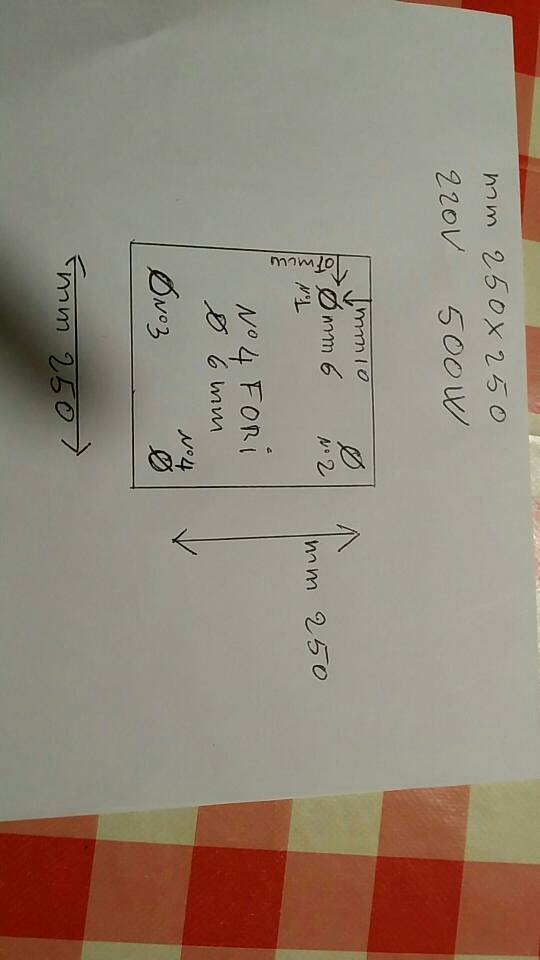 mm 250 x 250
220V 500W
mm 10
mm 10
Ø mm 6
N°1
Ø
N°2
N°4 FORi
Ø 6 mm
Ø N°3
N°4
Ø
mm 250
mm 250